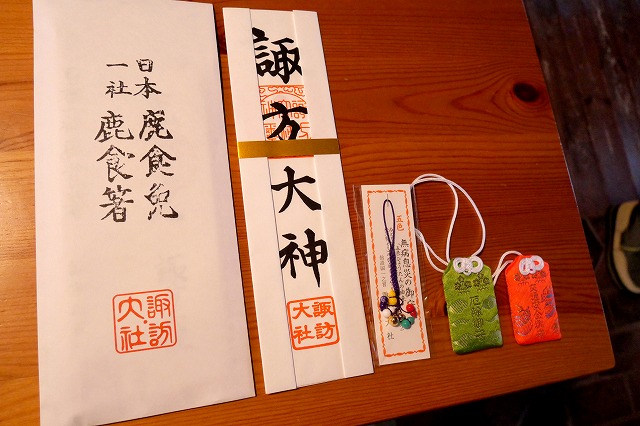 日本
一社
鹿食免
鹿食箸
諏訪
大社
諏方大神
諏訪
大社
五色
無病息災の御守